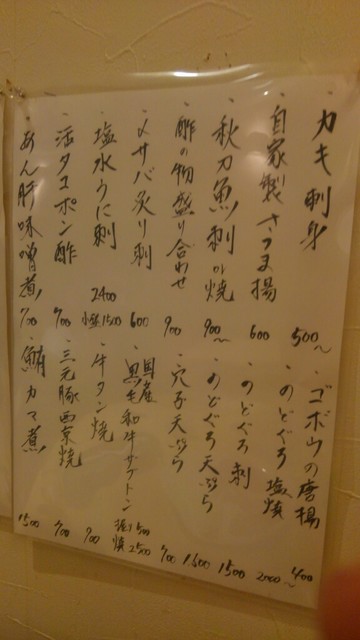 ・カキ刺身 500〜
・自家製さつま揚 600
・秋刀魚刺or焼 900〜
・酢の物盛り合わせ 900
・〆サバ炙り刺 600
・塩水うに刺 2400
小盛1500
・活タコポン酢 700
・あん肝味噌煮 700
・ゴボウの唐揚 400
・のどぐろ塩焼 2000〜
・のどぐろ刺 1500
・のどぐろ天ぷら 1500
・穴子天ぷら 700
・国産黒毛和牛ザブトン
握り500
焼2500
・牛タン焼 900
・三元豚西京焼 700
・鮪カマ煮 1500